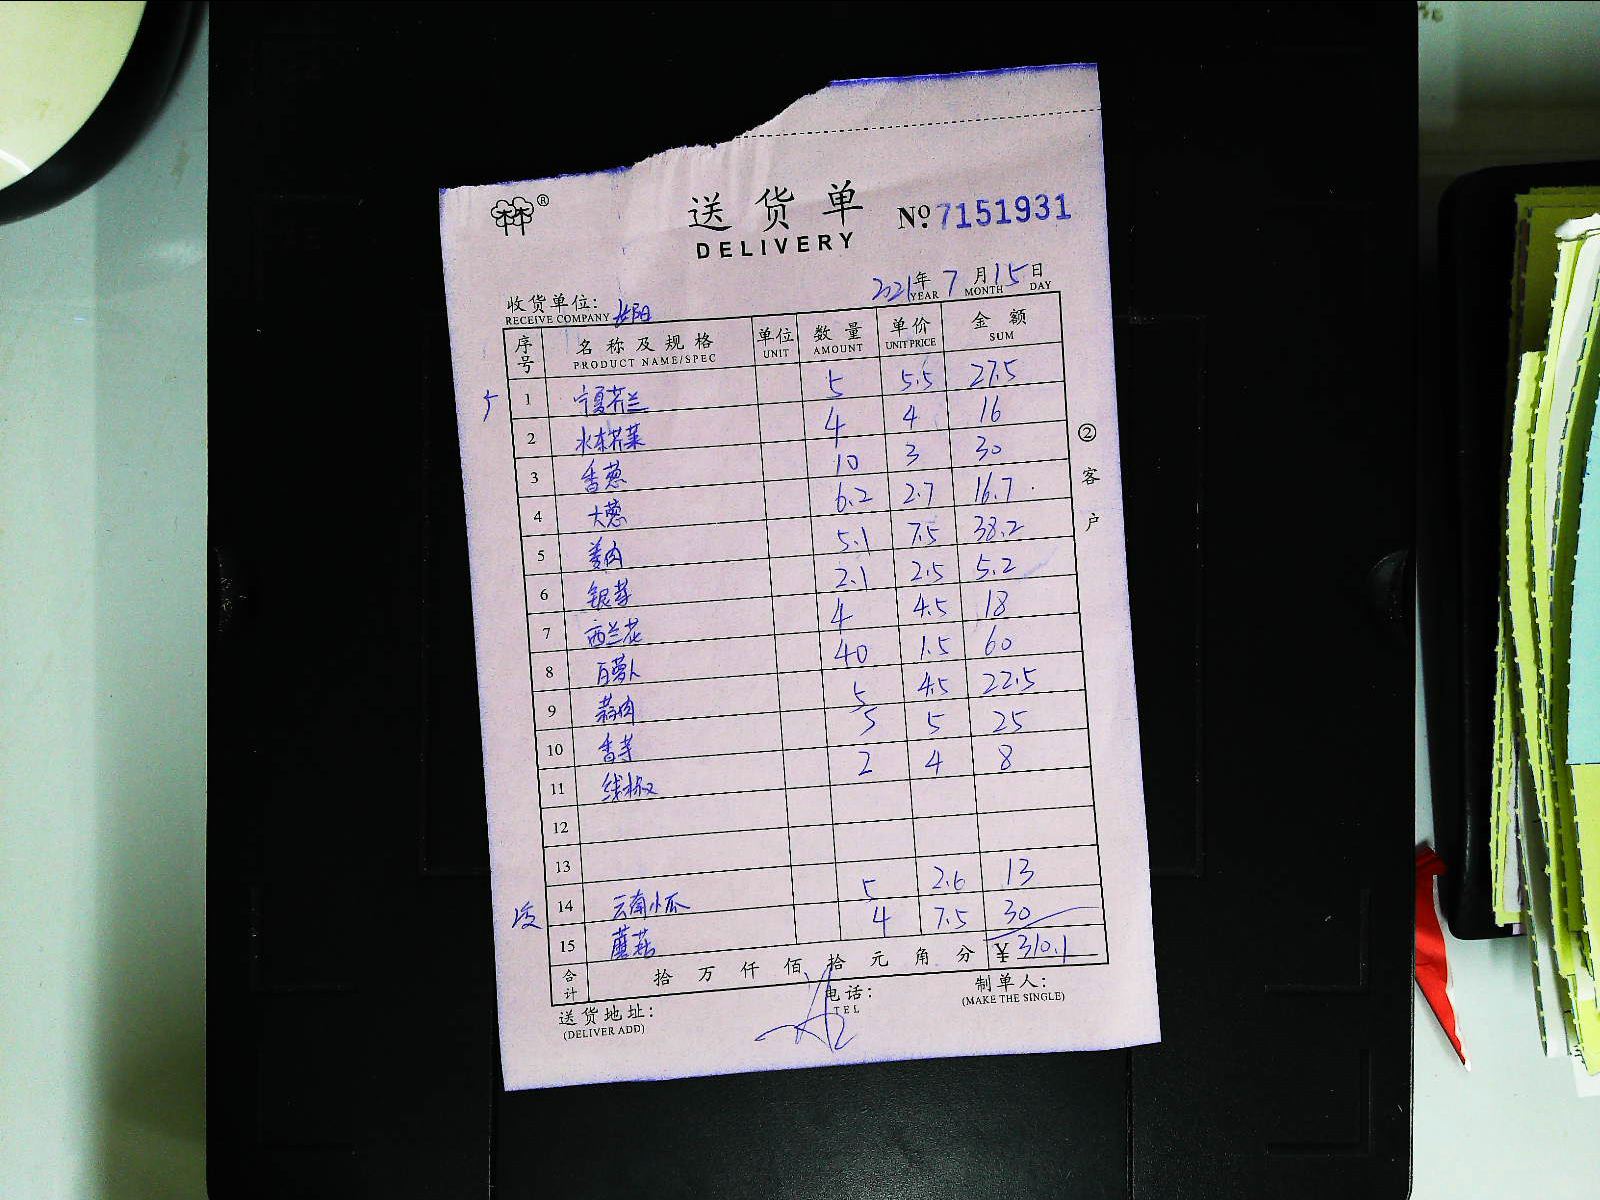 ®
送货单 №7151931
DELIVERY
2021年 7 月 15 日
YEAR MONTH DAY
收货单位:
RECEIVE COMPANY
序号 名称及规格 单位 数量 单价 金额
PRODUCT NAME/SPEC UNIT AMOUNT UNIT PRICE SUM
1 宁夏芥兰 5 5.5 27.5
2 水东芥菜 4 4 16
3 香葱 10 3 30
4 大葱 6.2 2.7 16.7
5 姜肉 5.1 7.5 38.2
6 银芽 2.1 2.5 5.2
7 西兰花 4 4.5 18
8 白萝卜 40 1.5 60
9 蒜肉 5 4.5 22.5
10 香芋 5 5 25
11 线椒 2 4 8
12
13
14 云南小瓜 5 2.6 13
15 蘑菇 4 7.5 30
合计 拾 万 仟 佰 拾 元 角 分 ¥310.1
送货地址: 电话: 制单人:
(DELIVER ADD) TEL (MAKE THE SINGLE)
② 客户